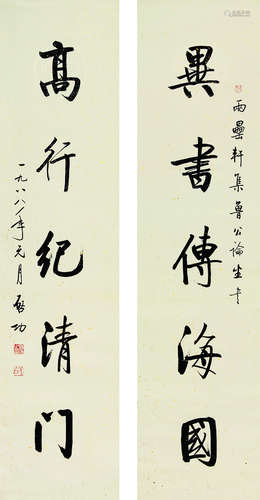 異書傳海國
雨罍軒集魯公論坐帖
高行紀清门
一九八八年元月 啟功